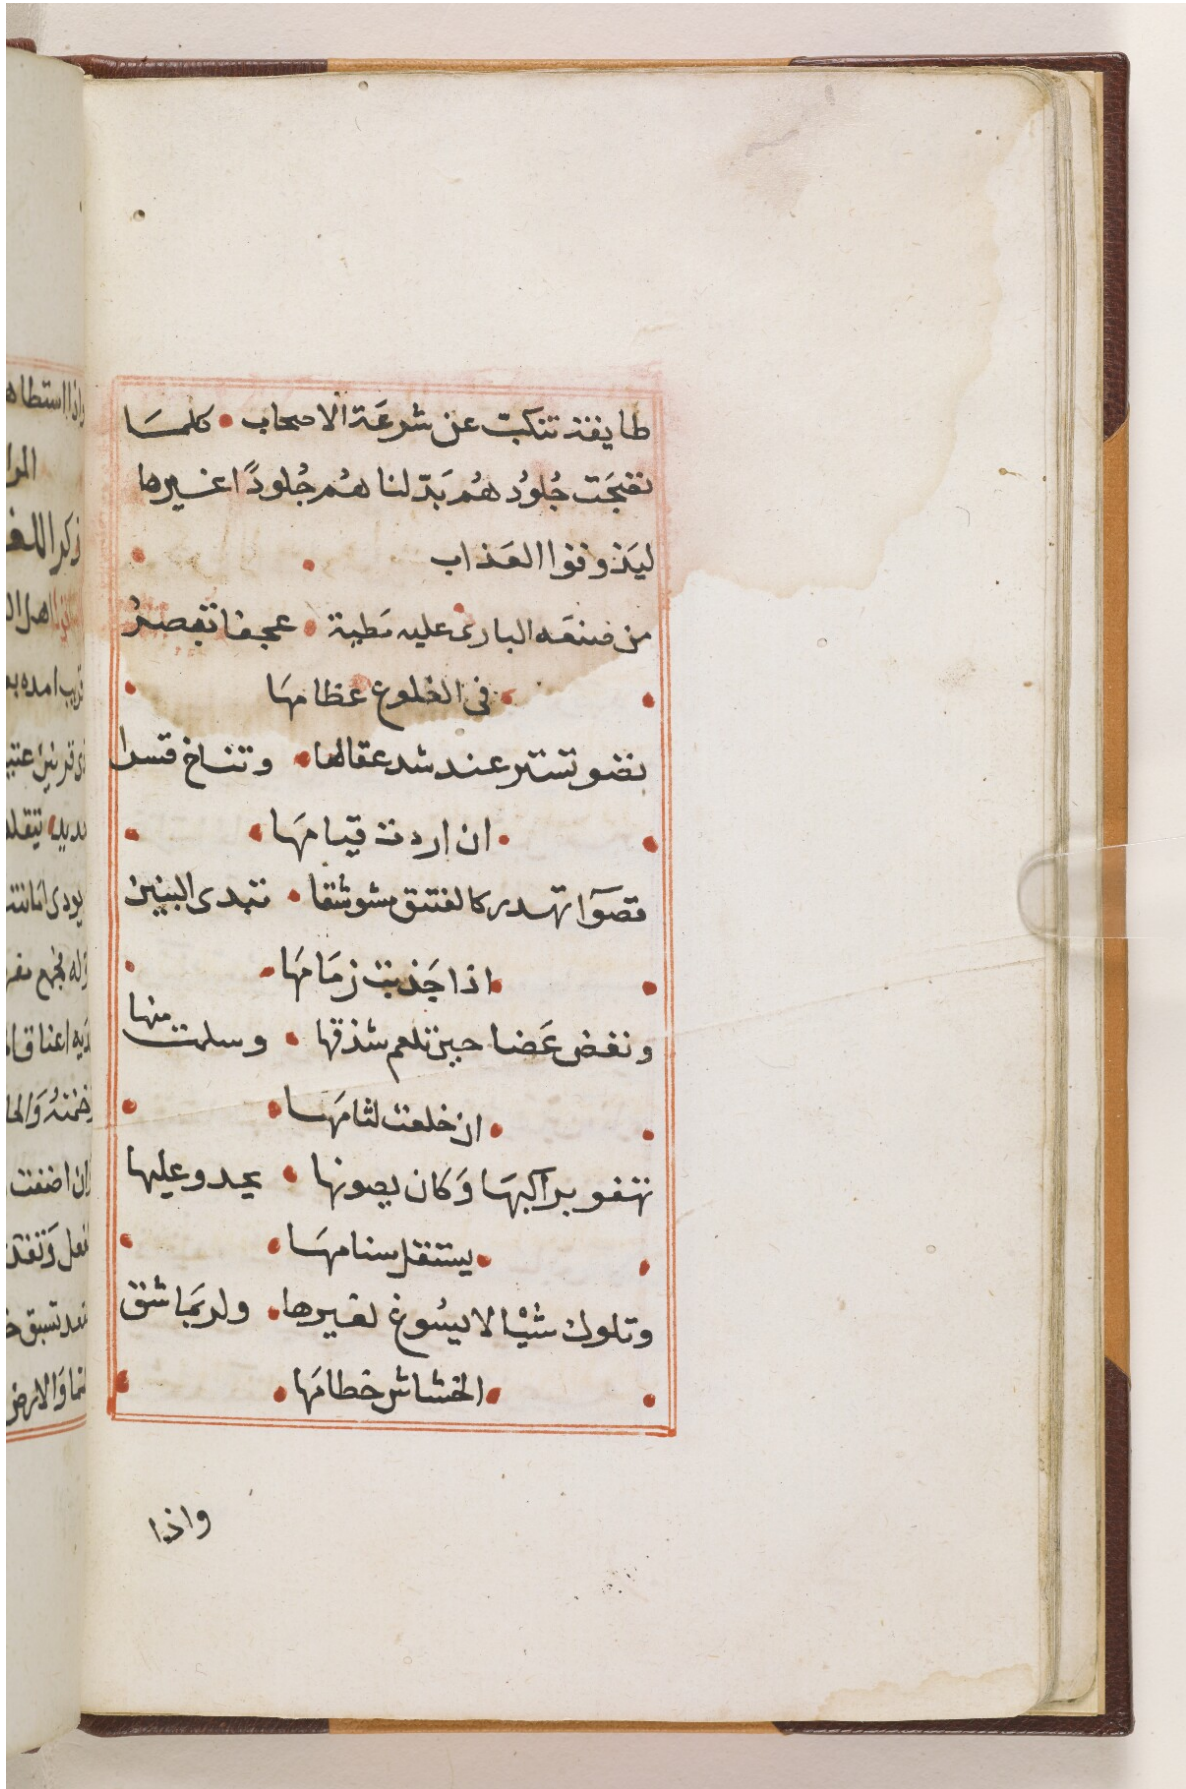 طايفة تنكبت عن شرعة الاصحاب • كلمسا
نضجت جُلوُدهُم بَدّلناهُم جُلودًا غيرها
ليَذوقوا العَذاب
من ضنعَه البارى عليه مَطية • عجفا تقصرُ
• فى الضلوع عظامهَا
نضو تستتر عند شد عقالها • وتناخ قسرا
• ان اردت قيامهَا •
قصوَآ تهدر كالفنتق شوشقا • تبدى البنين
• اذا جَذبت زمَامهَا •
ونغض عَضا حين تلعم شذقها • وسلمت منها
• ان خلعت لثامهَا •
تهفو براكبهَا وَكان يصونها • يحدو عليها
• يستقل سنامهَا •
وتلوك شيْا لا يسُوغ لغيرها • ولربمَا شق
• الخشاش خطامهَا •
واذا
واذا استطا
المرا
ذكر اللغ
اهل ال
قريب امده
يودى امانت
وان اضفت
فعل وَتغد